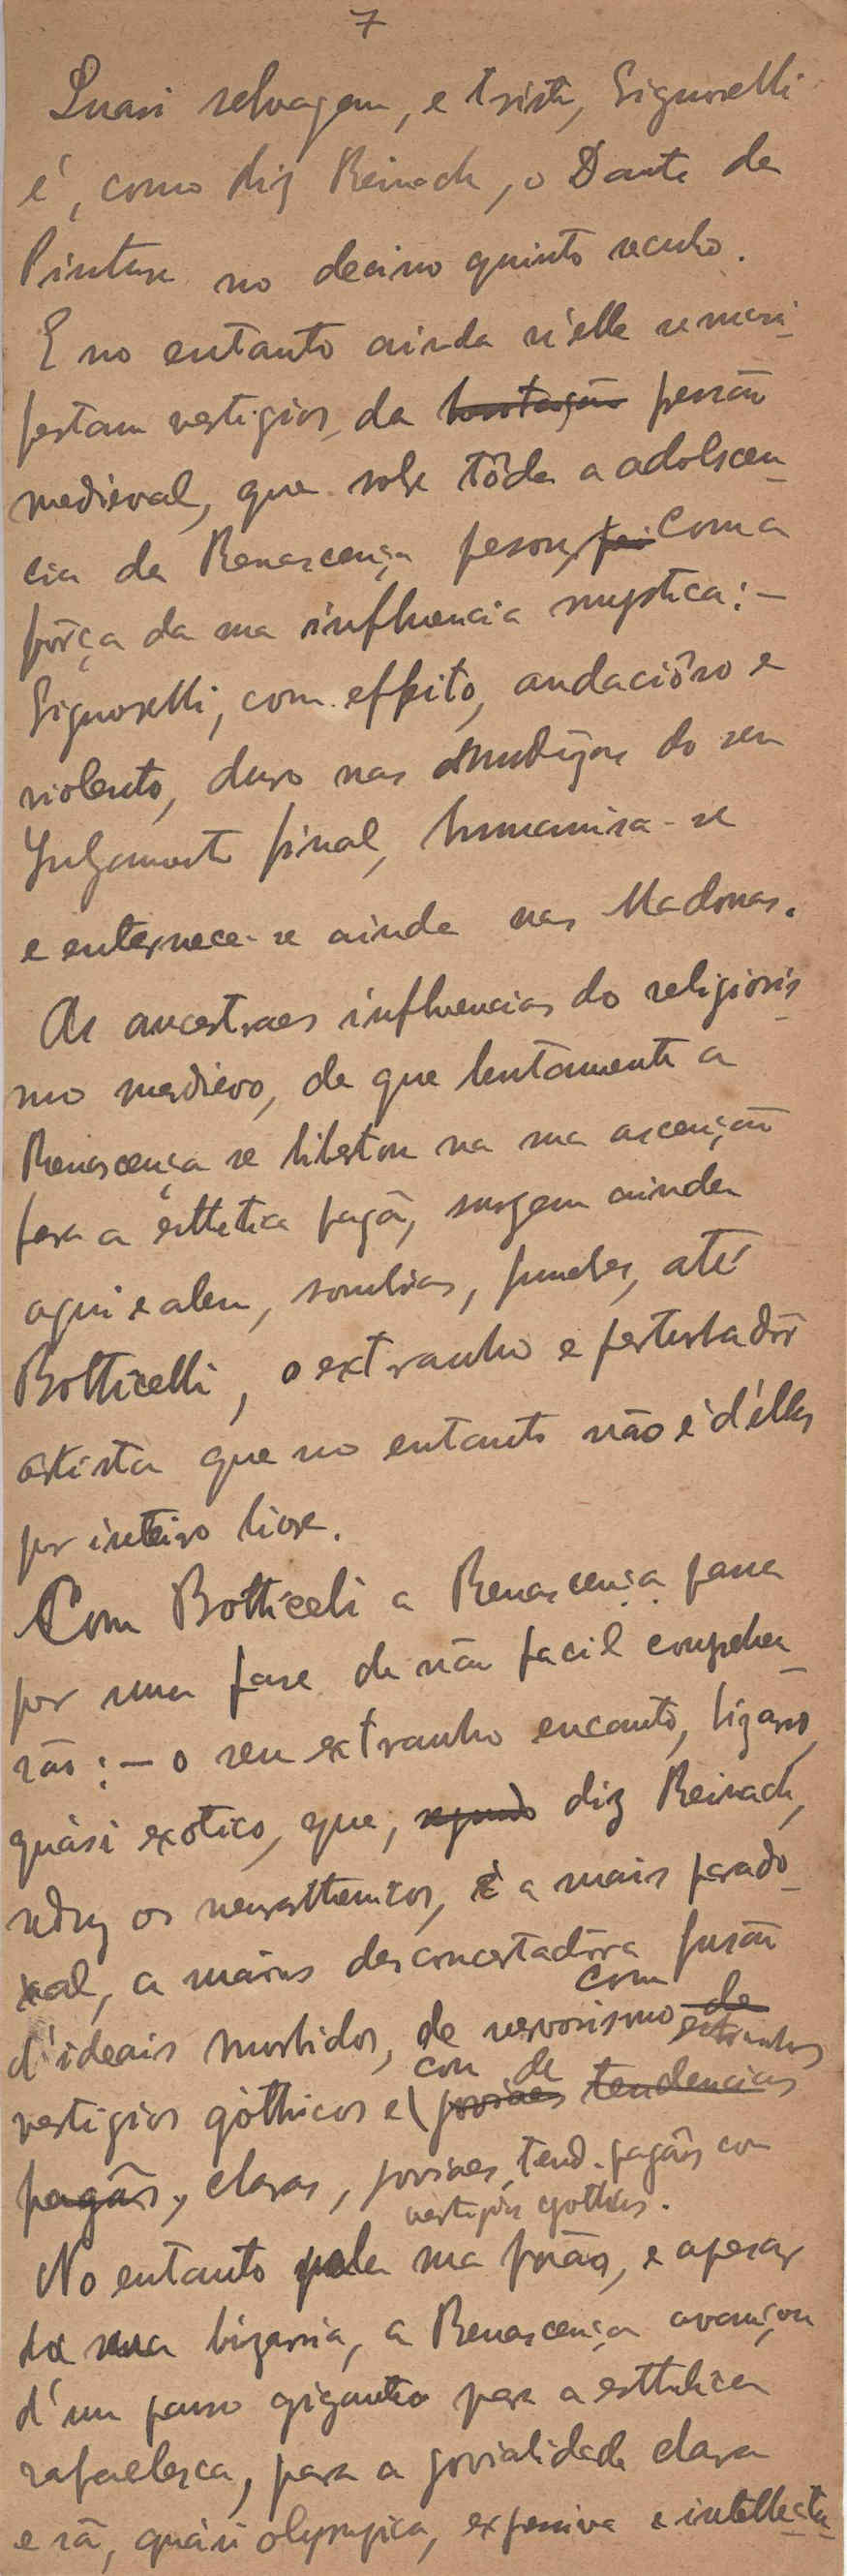 7
Quasi selvagem, e triste, Signorelli
é, como diz Reinach, o Dante da
Pintura no decimo quinto seculo.
E no entanto ainda n'elle se mani-
festam vestigios da pressão
medieval, que sobre tôda a adolscen-
cia da Renascença pesou com a
fôrça da sua influencia mystica: –
Signorelli, com effeito, audaciôso e
violento, duro nas do seu
Julgamento final, humanisa-se
e enternece-se ainda nas Madonas.
As ancestraes influencias do religiosis-
mo medievo, de que lentamente a
Renascença se libertou na sua ascenção
para a esthetica pagã, surgem ainda
aqui e alem, sombrias, funebres, até
Botticelli, o extranho e perturbadôr
artista que no entanto não é d'ellas
por inteiro livre.
Com Botticeli a Renascença passa
por uma fase de não facil comprehen-
são: – o seu extranho encanto, bizarro,
quàsi exotico, que, segundo diz Reinach,
seduz os neurasthenicos, é a mais parado-
xal, a mais desconcertadôra fusão
com
d'ideais morbidos, de nervosismo de extranhos
con de
vestigios góthicos e joviaes tendencias
pagãs, claras, joviaes, tend. pagãs com
vestigios gothicos.
No entanto pela sua fusão, e apesar
da sua bizarria, a Renascença avançou
d'um passo gigante para a esthetica
rafaelesca, para a jovialidade clara
e sã, quàsi olympica, expansiva e intellectu-